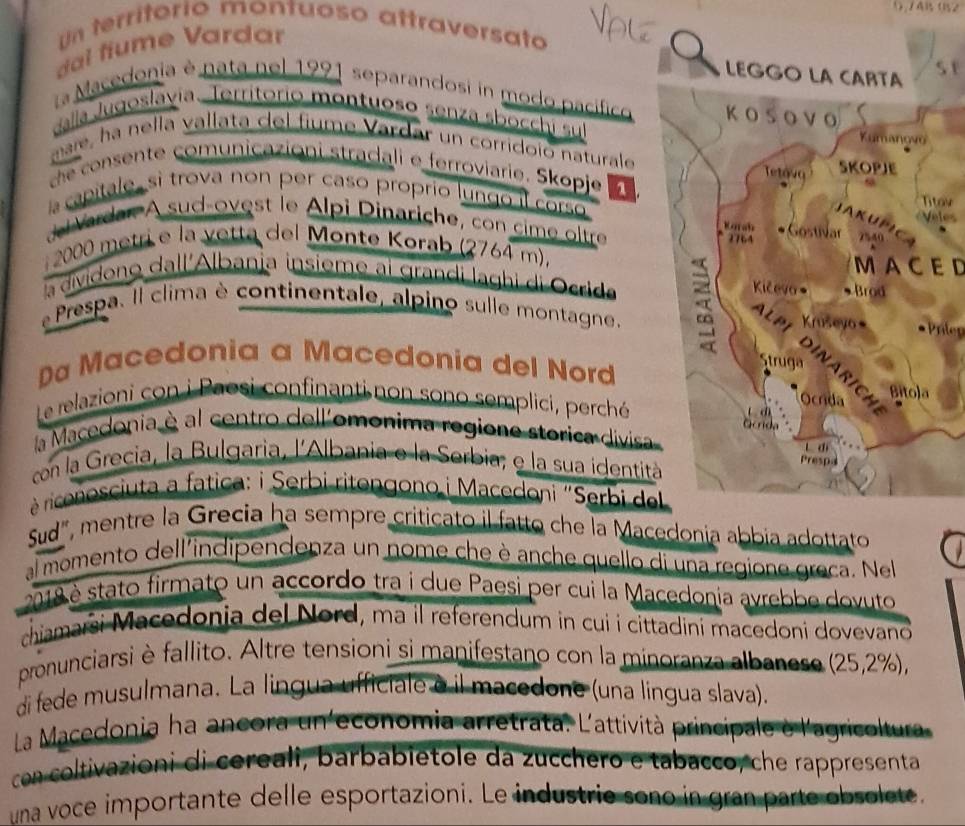 Un territorio montuoso attraversato
dal fiume Vardar
La Macedonia è nata nel 1991 separandosi in modo pacifico
dalla Jugoslavia. Territorio montuoso senza sbocchi sul
mare, ha nella vallata del fiume Vardar un corridoio naturale
che consente comunicazioni stradali e ferroviarie. Skopje 1,
la capitale, si trova non per caso proprio lungo il corso
del Vardar. A sud-ovest le Alpi Dinariche, con cime oltre
i 2000 metri e la vetta del Monte Korab (2764 m),
la dividono dall'Albania insieme ai grandi laghi di Ocrida
e Prespa. Il clima è continentale, alpino sulle montagne.
Da Macedonia a Macedonia del Nord
Le relazioni con i Paesi confinanti non sono semplici, perché
la Macedonia è al centro dell'omonima regione storica divisa
con la Grecia, la Bulgaria, l'Albania e la Serbia; e la sua identità
è riconosciuta a fatica: i Serbi ritengono i Macedoni "Serbi del
Sud", mentre la Grecia ha sempre criticato il fatto che la Macedonia abbia adottato
al momento dell'indipendenza un nome che è anche quello di una regione greca. Nel
2018 è stato firmato un accordo tra i due Paesi per cui la Macedonia avrebbe dovuto
chiamarsi Macedonia del Nord, ma il referendum in cui i cittadini macedoni dovevano
pronunciarsi è fallito. Altre tensioni si manifestano con la minoranza albanese (25,2%),
di fede musulmana. La lingua ufficiale è il macedone (una lingua slava).
La Macedonia ha ancora un'economia arretrata. L'attività principale è l'agricoltura
con coltivazioni di cereali, barbabietole da zucchero e tabacco, che rappresenta
una voce importante delle esportazioni. Le industrie sono in gran parte obsolete.
LEGGO LA CARTA
KOSOVO
Kumanovo
Tetovo
SKOPJE
Titov
Veles
JAKUPICA
2540
Korab
2764
Gostivar
MACED
ALBANIA
Kičevo
Brod
Kruševo
Prilep
ALPI DINARICHE
Struga
Ocrida
Bitola
L. di
Ocrida
L. di
Prespa